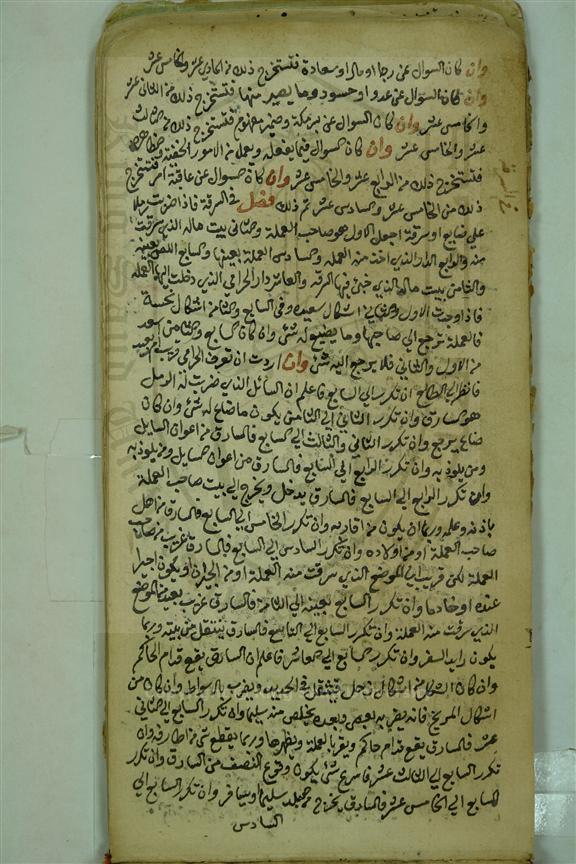 وان كان السوال عن رجا او مال او سعادة فتستخرج ذلك من الحادي عشر والخامس عشر
وان كان السوال عن عدو او حسود وما يصير منها فتستخرج ذلك من الثاني عشر
والخامس عشر وان كان السوال عن فتستخرج ذلك من الثالث
عشر والخامس عشر وان كان السوال فيما يفعله ويعمله من الامور الخفية
فتستخرج ذلك من الرابع عشر والخامس عشر وان كان السوال عن عاقبة امر فتستخرج
ذلك من الخامس عشر والسادس عشر تم ذلك فصل في السرقة فاذا ضربت رملا
على ضايع او سرقة اجعل الاول هو صاحب العملة والثاني بيت ماله الذي سرقت
منه والرابع الدار الذي اخذ منه العملة والسادس العملة بعينها والسابع اللص بعينه
والثامن بيت ماله الذي خبى فيها السرقة والعاشر دار الحرامي الذي دخلت اليها العملة
فاذا وجدت الاول والثاني اشكال سعيدة وفي السابع والثامن اشكال نحسة
فالعملة ترجع الى صاحبها وما يضيع له شئ وان كان السابع والثامن اسعد
من الاول والثاني فلا يرجع اليه شئ وان اردت ان تعرف الحرامي
فانظر الى الطالع ان تكرر الى السابع فاعلم ان السائل الذي ضربت له الرمل
هو السارق وان تكرر الثاني الى الثامن يكون ما ضاع له شئ وان كان
ضاع يرجع وان تكرر الثاني والثالث الى السابع فالسارق من اعوان السايل
ومن يلوذ به وان تكرر الرابع الى السابع فالسارق من اعوان السايل ومن يلوذ به
وان تكرر الرابع الى السابع فالسارق يدخل ويخرج الى بيت صاحب العملة
باذنه وعلمه وربما ان يكون من اقاربه وان تكرر الخامس الى السابع فالسارق من اهل
صاحب العملة او من اولاده وان تكرر السادس الى السابع فالسارق غريب من صاحب
العملة لكن قريب الى الموضع الذي سرقت منه العملة او من الجيران او يكون اجيرا
عنده او خادما وان تكرر السابع بعينه الى الثامن فالسارق غريب بعيد الموضع
الذي سرقت منه العملة وان تكرر السابع الى التاسع فالسارق ينتقل من بيته وربما
يكون رايد السفر وان تكرر السابع الى العاشر فاعلم ان السارق يقع قدام الحاكم
وان كان الشكل من اشكال زحل فيثقل في الحديد ويضرب بالسواط وان كان من
اشكال المريخ فانه يضربه وبعده يخلص منه سليما وان تكرر السابع الى الثاني
عشر فالسارق يقع قدام حاكم ويقر بالعملة ويظهرها وربما يقطع شئ من اطرافه وان
تكرر السابع الى الثالث عشر فاسرع شئ يكون وقوع النصف من السارق وان تكرر
السابع الى الخامس عشر فالسارق يخرج من البلد سليما او يسافر وان تكرر السابع الى
السادس